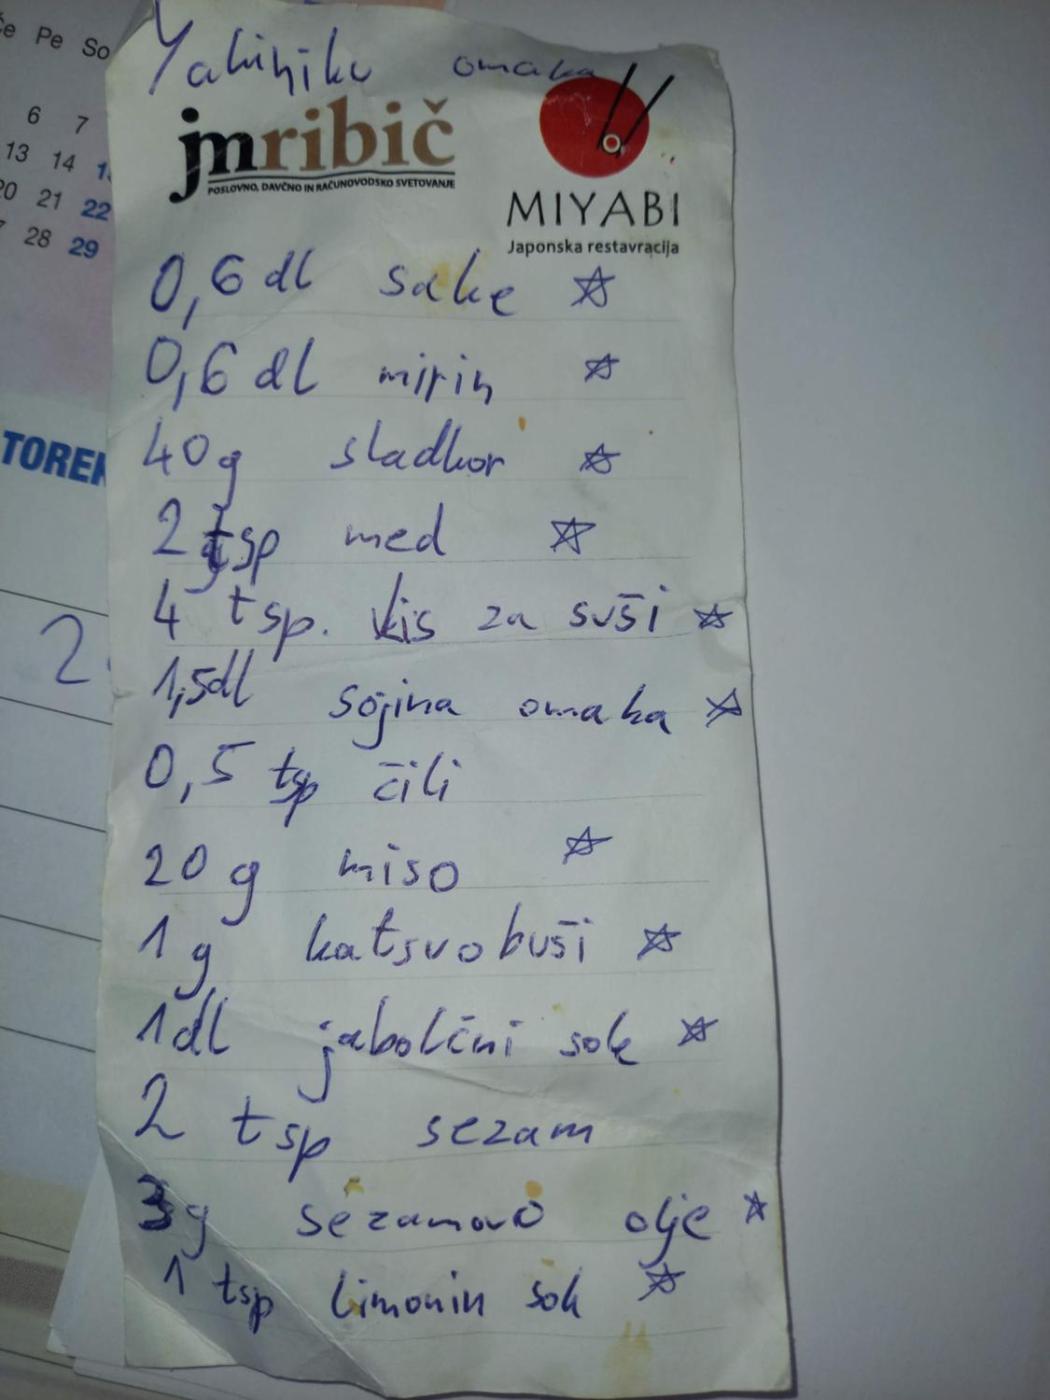 Če Pe So
6 7
13 14
20 21 22
28 29
TOREK
2
Yakiniku omaka
jmribič
POSLOVNO, DAVČNO IN RAČUNOVODSKO SVETOVANJE
MIYABI
Japonska restavracija
0,6 dl sake
0,6 dl mirin
40 g sladkor
2 tsp med
4 tsp. kis za suši
1,5dl sojina omaka
0,5 tsp čili
20 g miso
1 g katsuobuši
1dl jabolčni sok
2 tsp sezam
3g sezamovo olje
1 tsp limonin sok